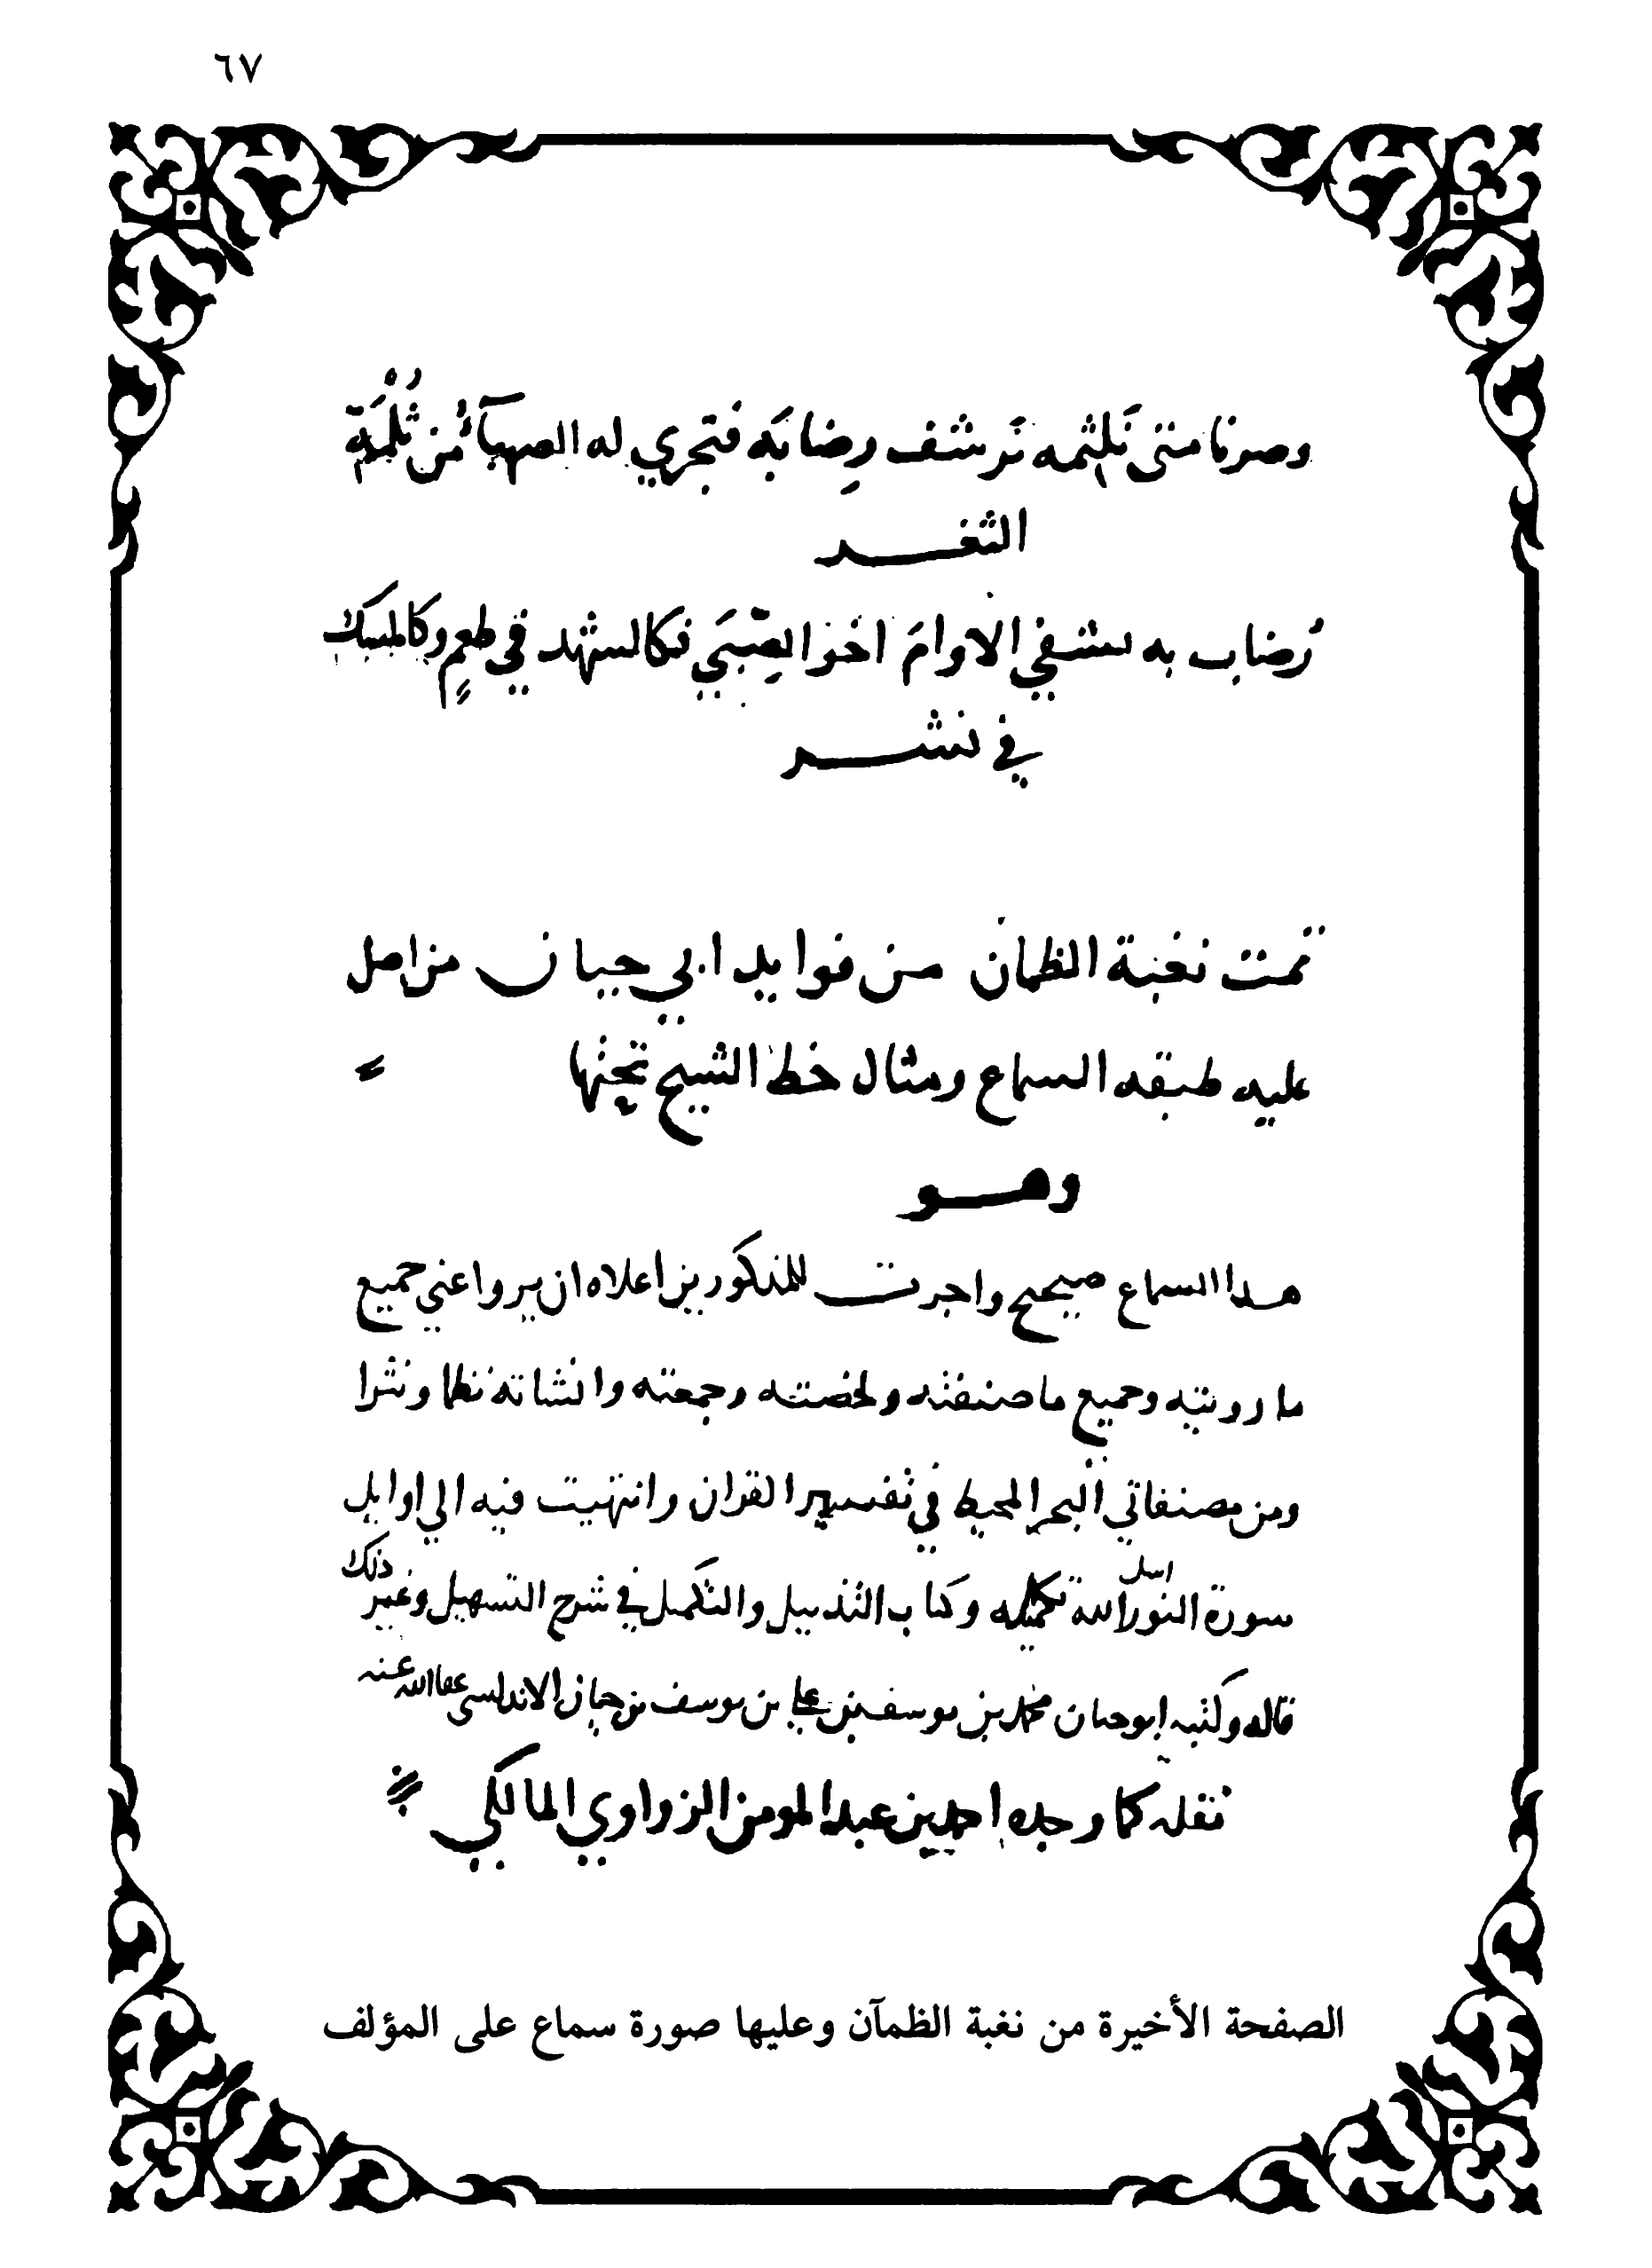 ٦٧
وصرنا متى نلثمه نرشف رضابه فتجري له الصهبآء من ثلمة
الثغـر
رُضاب به نشفي الاوام اخو الصبي فكالشهد في طعم وكالمسك
في نشـر
تمت نغبة الظمان من فوايد ابي حيان من اصل
عليه طبقه السماع ومثال خط الشيخ تحتها
وهـو
هدا السماع صحيح واجزت للمذكورين اعلاه ان يرووا عني جميع
ما رويته وجميع ما صنفته ولخصته وجمعته وانشاته نظما ونثرا
ومن مصنفاتي البحر المحيط في تفسير القران وانتهيت فيه الي اوايل
سورة النور الله تكميله وكتاب التذييل والتكميل في شرح التسهيل وغير ذلك
قاله وكتبه ابو حيان محمد بن يوسف بن علي بن يوسف بن حيان الاندلسي عفا الله عنه
نقله كما وجده احمد بن عبد المومن الزواوي المالكي
الصفحة الأخيرة من نغبة الظمآن وعليها صورة سماع على المؤلف